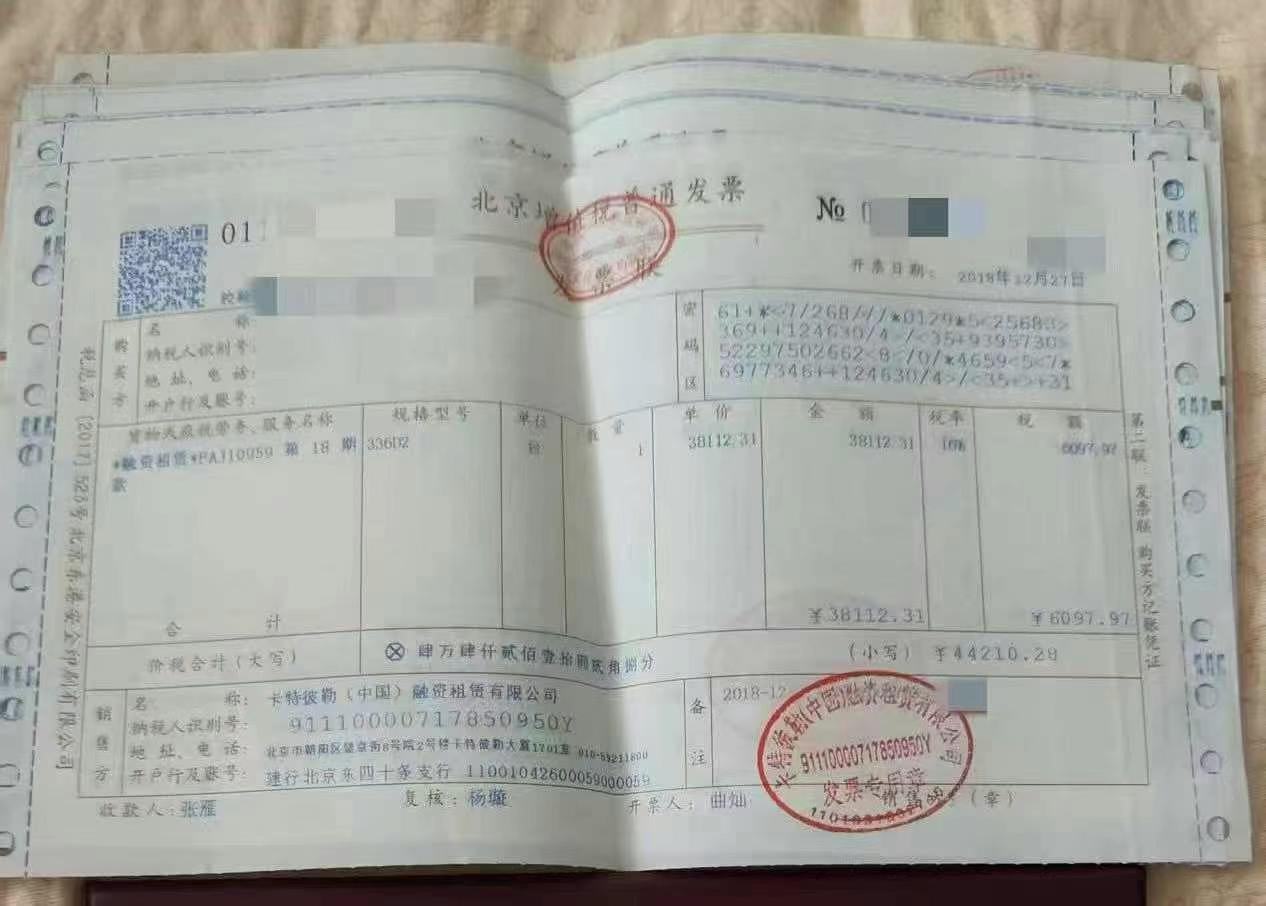 北京增值税普通发票
发票联
01
№
开票日期: 2018年12月27日
购买方
名 称:
纳税人识别号:
地 址、电 话:
开户行及账号:
密码区
61+*<7/268///*0129*5<25683>
369++124630/4>/<35+9395730>
52297502662<8</0/*4659<5<7*
6977346++124630/4>/<35+>+31
货物或应税劳务、服务名称 规格型号 单位 数 量 单 价 金 额 税率 税 额
*融资租赁*PAJ10959 第 18 期款 336D2 份 1 38112.31 38112.31 16% 6097.97
合 计 ¥38112.31 ¥6097.97
价税合计(大写) ⊗肆万肆仟贰佰壹拾圆贰角捌分 (小写) ¥44210.28
销售方
名 称: 卡特彼勒(中国)融资租赁有限公司
纳税人识别号: 91110000717850950Y
地 址、电 话: 北京市朝阳区望京街8号院2号楼卡特彼勒大厦1701室 010-59211800
开户行及账号: 建行北京东四十条支行 11001042600059000059
备注
2018-12
收款人: 张雁 复核: 杨璇 开票人: 曲灿 销售方: (章)
卡特彼勒(中国)融资租赁有限公司
91110000717850950Y
发票专用章
第二联: 发票联 购买方记账凭证